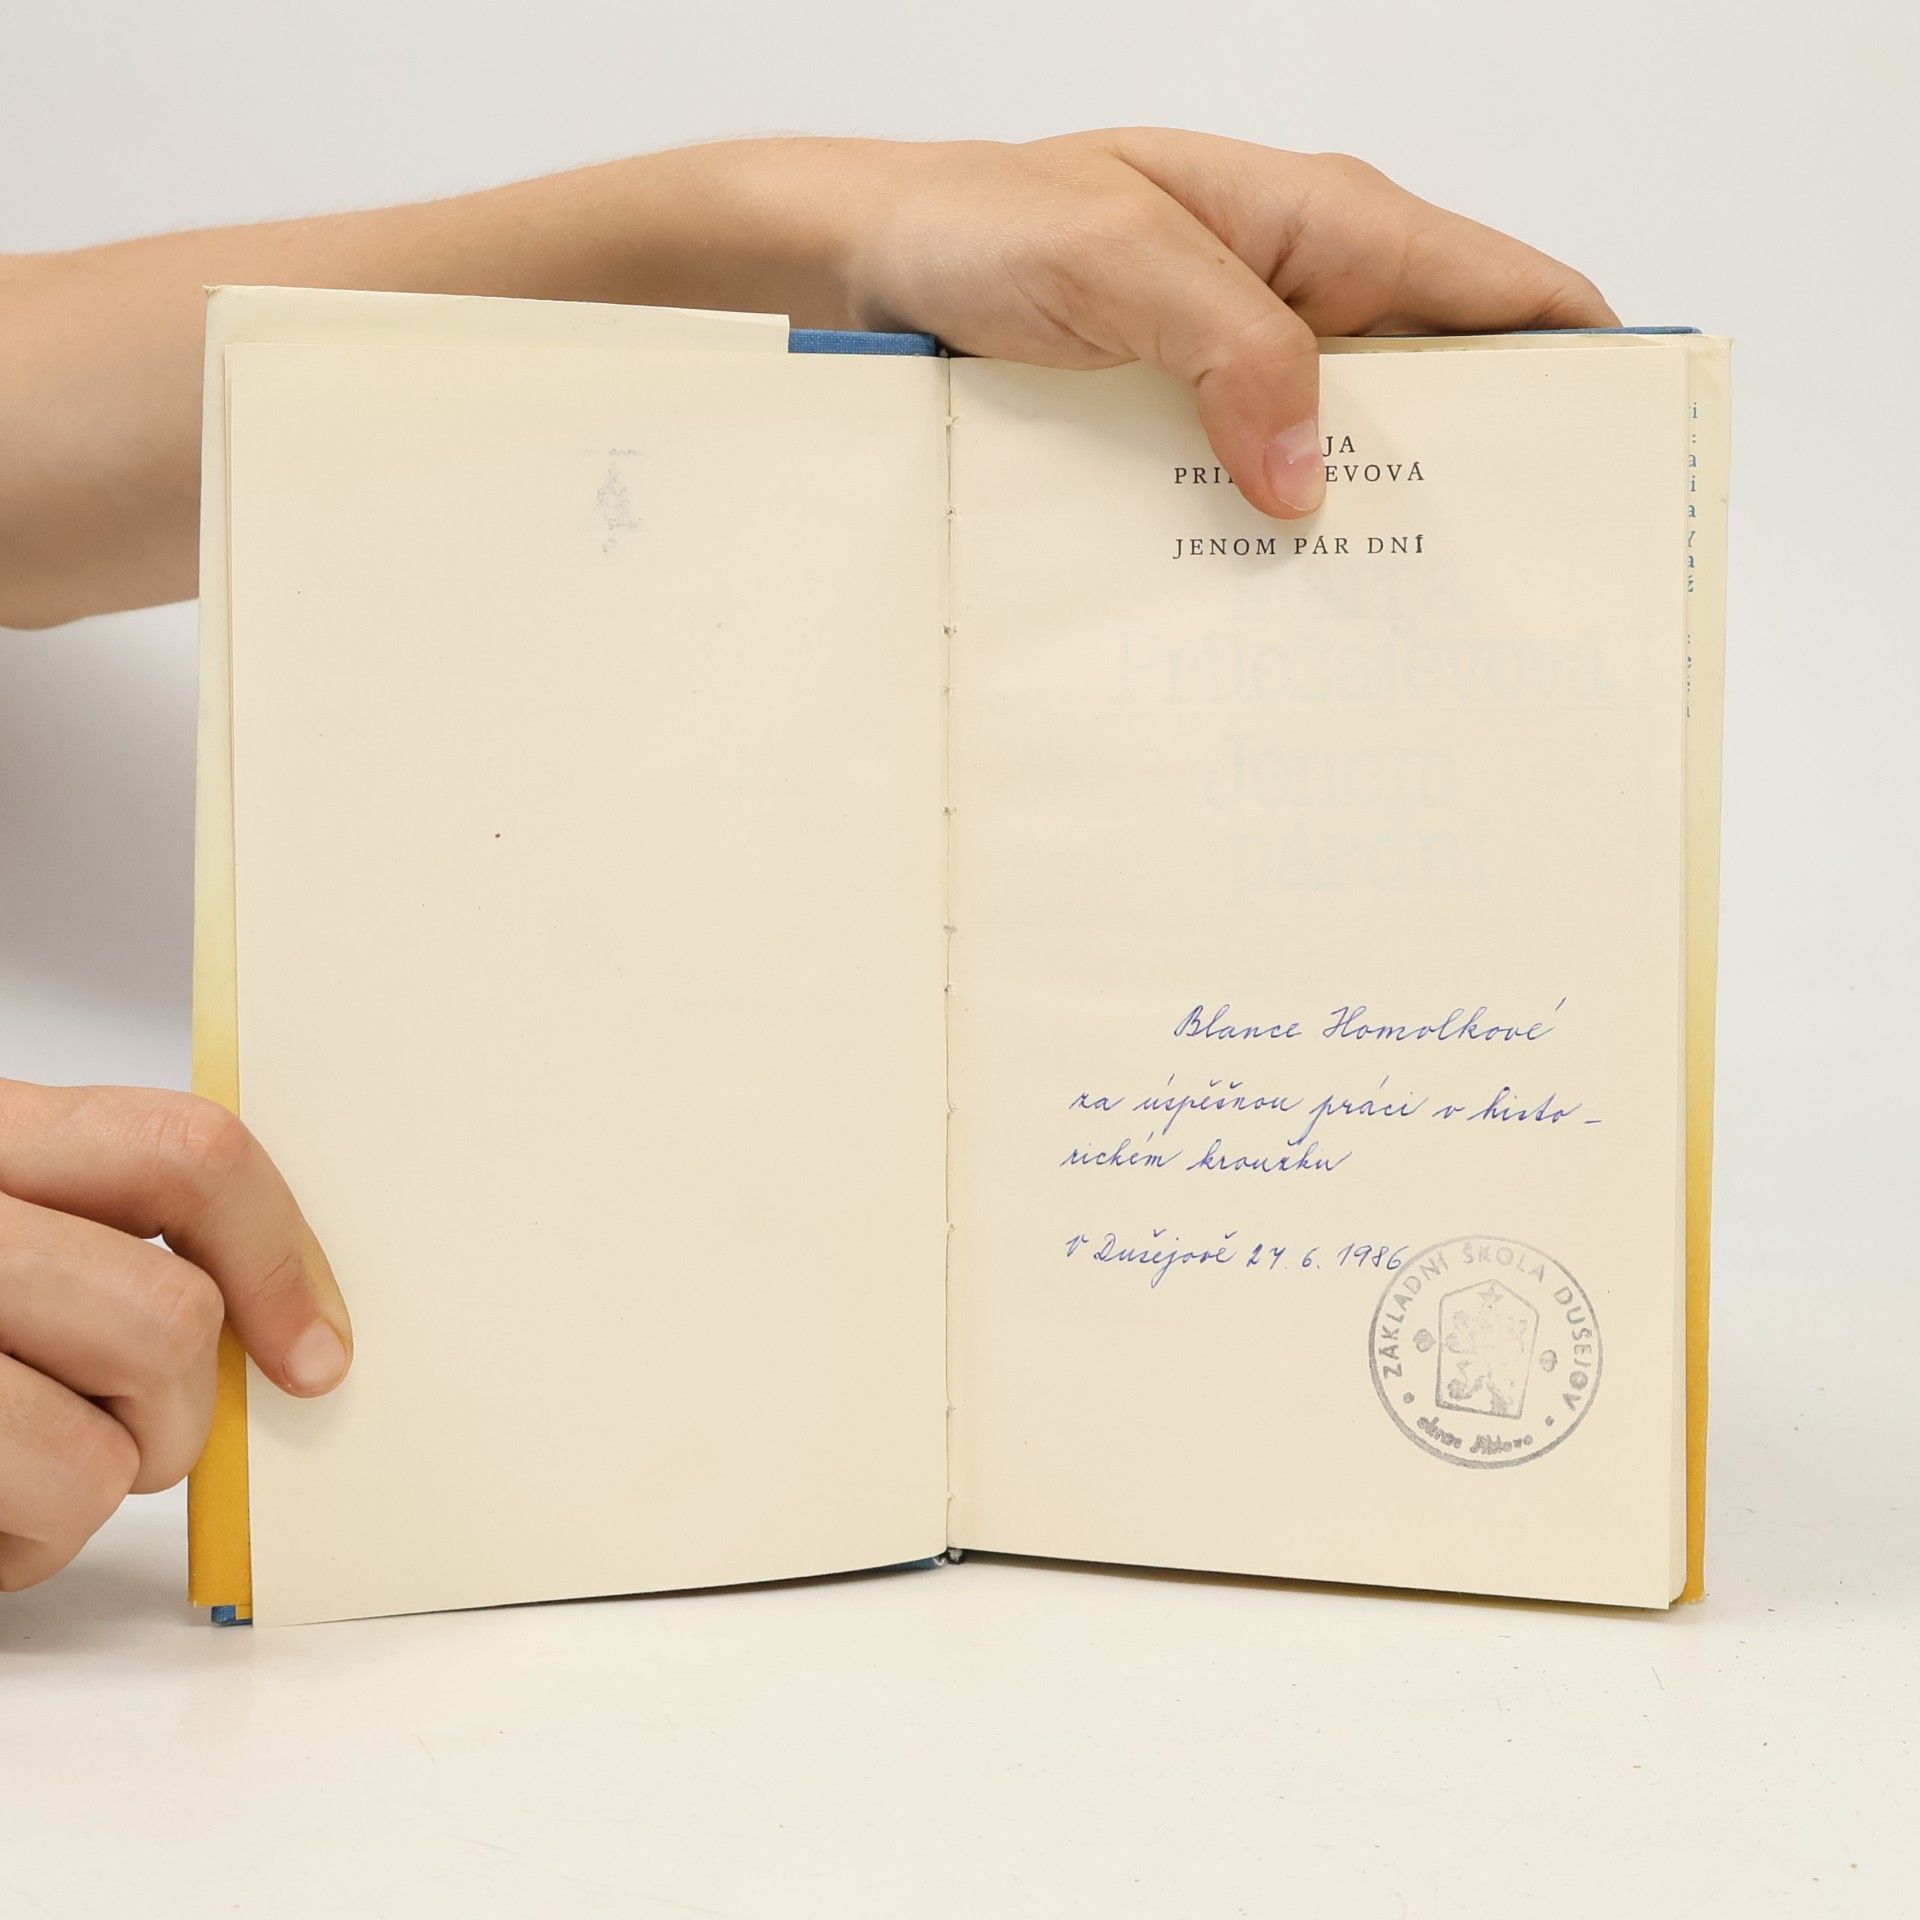 JA
PRI EVOVÁ
JENOM PÁR DNÍ
Prilezajevová
Jenom
pár dní
Blance Homolkové
za úspěšnou práci v histo-
rickém kroužku
V Dušejově 27. 6. 1986
ZÁKLADNÍ ŠKOLA DUŠEJOV
okres Jihlava